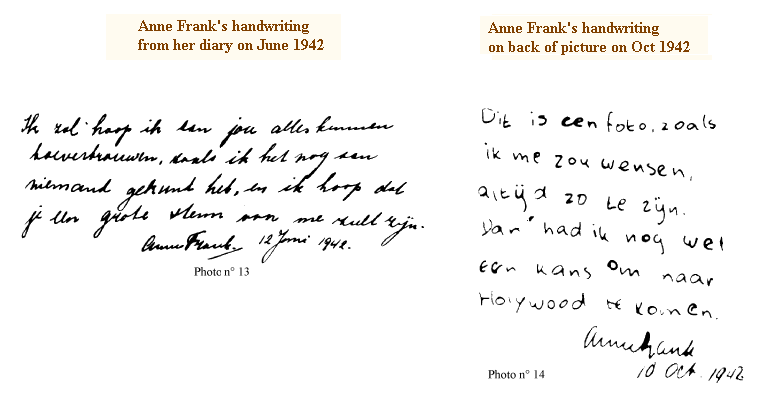 Anne Frank's handwriting
from her diary on June 1942
Ik zal hoop ik aan jou alles kunnen
toevertrouwen, zoals ik het nog aan
niemand gekunt heb, en ik hoop dat
je een grote steun van me zult zijn.
Anne Frank. 12 Juni 1942.
Photo n° 13
Anne Frank's handwriting
on back of picture on Oct 1942
Dit is een foto, zoals
ik me zou wensen,
altijd zo te zijn.
Dan had ik nog wel
een kans om naar
Holywood te komen.
Annefrank
10 Oct. 1942
Photo n° 14